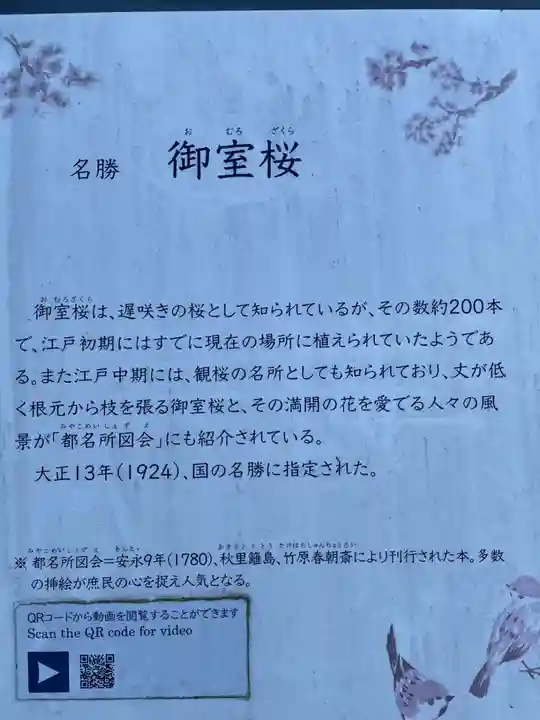 名勝 御室桜
おむろざくら
御室桜は、遅咲きの桜として知られているが、その数約200本
おむろざくら
で、江戸初期にはすでに現在の場所に植えられていたようであ
る。また江戸中期には、観桜の名所としても知られており、丈が低
く根元から枝を張る御室桜と、その満開の花を愛でる人々の風
景が「都名所図会」にも紹介されている。
みやこめいしょずえ
大正13年(1924)、国の名勝に指定された。
※都名所図会=安永9年(1780)、秋里籬島、竹原春朝斎により刊行された本。多数
みやこめいしょずえ あんえい あきさとりとう たけはらしゅんちょうさい
の挿絵が庶民の心を捉え人気となる。
QRコードから動画を閲覧することができます
Scan the QR code for video